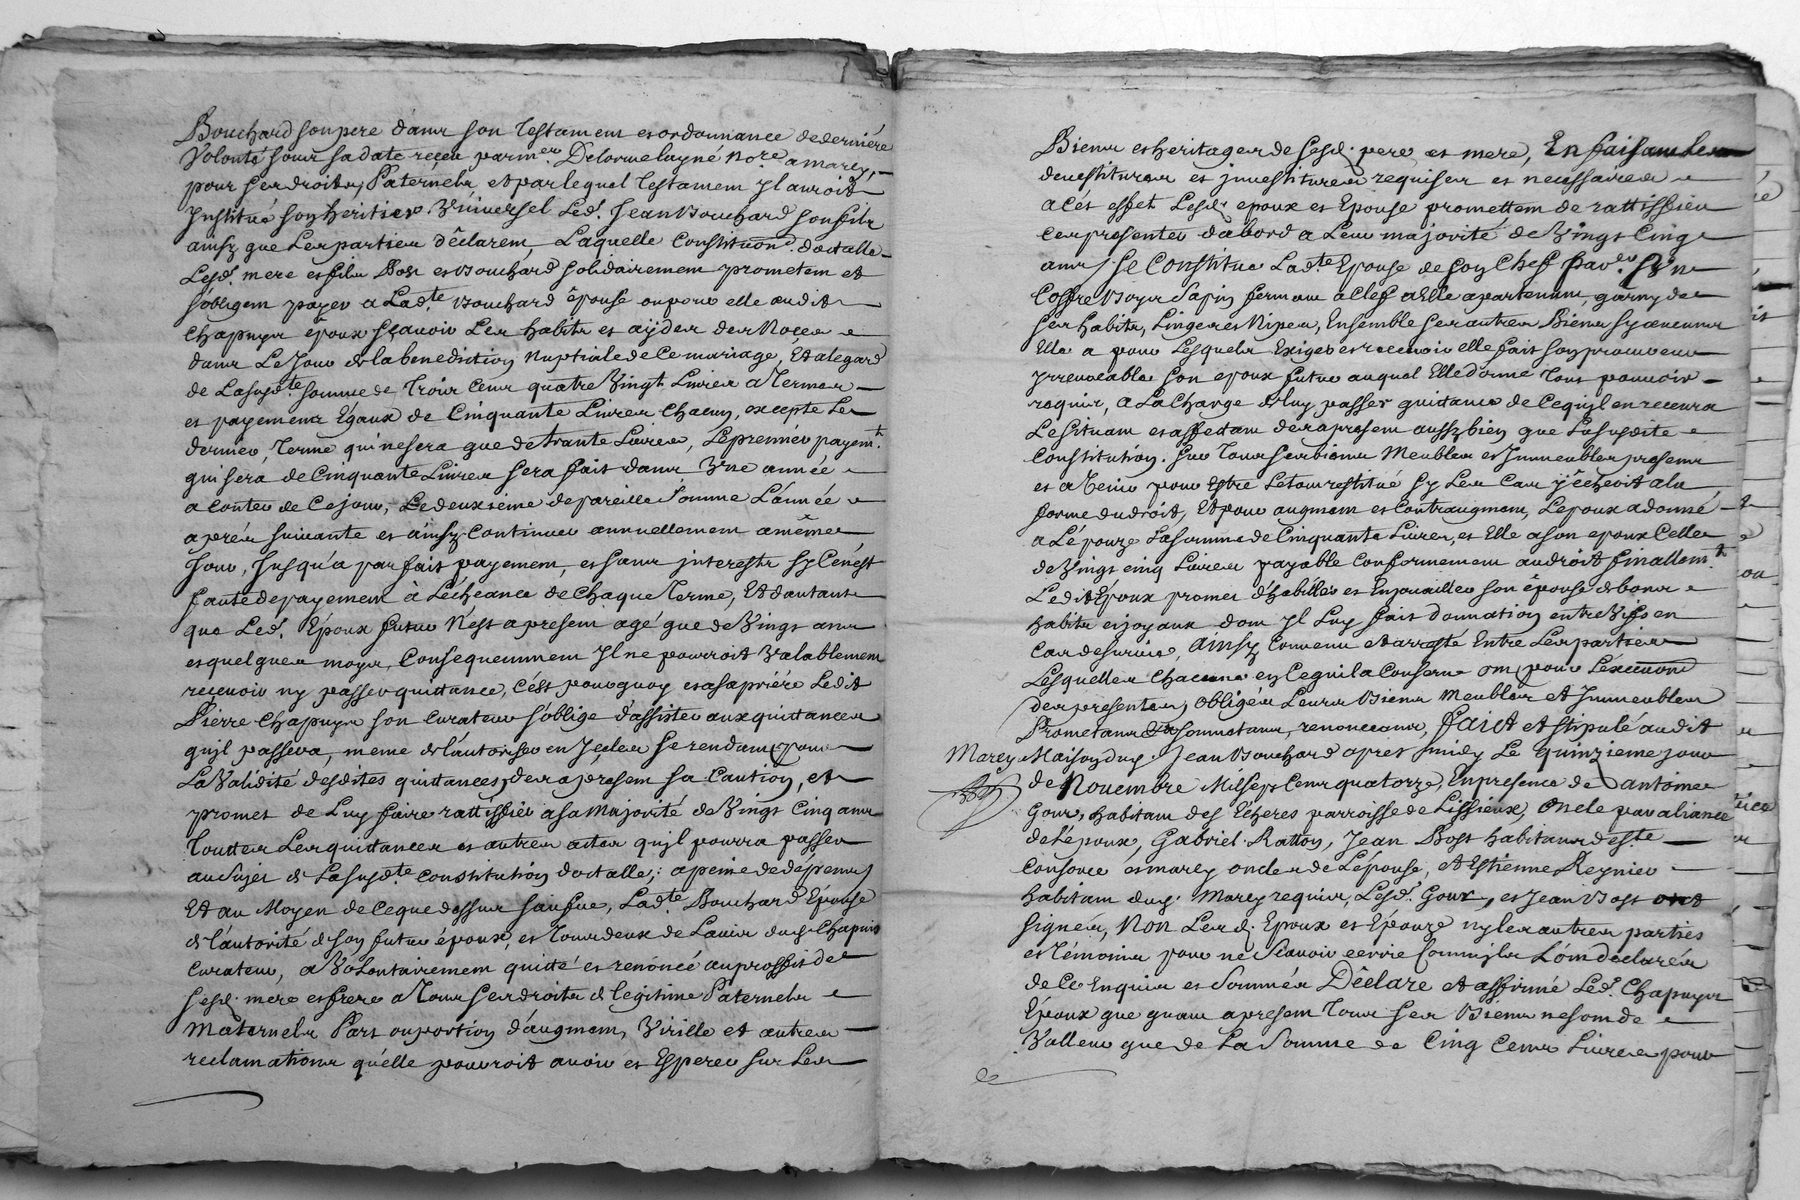 Bouchard son pere dans son Testament et ordonnance de derniére
Volonté sous sa date reçeu par me. Delorme layné no.re a marcy,
pour ses droits Paternels et par lequel Testament Jl auroit
Jnstitué son heritier Vniversel Led. Jean Bouchard son fils
ainsy que Les parties déclarent Laquelle Constituon. dotalle
Lesd. mere et fils Bost et Bouchard solidairement prometent et
s'obligent payer a Lad.te Bouchard épouse ou pour elle audit
Chapuys époux sçavoir Les habits et ayder des Noces
dans Le Jour de la benediction Nuptiale de Ce mariage, Et alegard
de Lasusd.te somme de Trois Cens quatre Vingt Livres a Termes
et payemens Egaux de Cinquante Livres Chacun, excepté Le
dernier, Terme qui ne sera que de trante Livres, Le premier payem.t
qui sera de Cinquante Livres sera fait dans Vne année
a Conter de Ce jour, Le deuxsieme de pareille Somme L'année
aprés suivante et ainsy Continuer annuellement a même
Jour, Jusqu'a parfait payement, et sans jnterests sy Cén'est
faute de payement à Léchéance de Chaque Terme, Et dautant
que Led. Epoux futur N'est apresent agé que de Vingt ans
et quelques moys, Consequemment Jl ne pourroit Valablement
reçevoir ny passer quittance, C'ést pourquoy et asapriére Ledit
Pierre Chapuys son Curateur s'oblige d'assister aux quittances
qu'jl passera, meme de l'autoriser en Jcelles se rendant pour
La Validité desdites quittances des apresent sa Caution, et
promet de Luy faire rattiffier asa Majorité de Vingt Cinq ans
Touttes Les quittances et autres actes qu'jl pourra passer
au Sujet de Lasusd.te Constitution dotalle, a peine de dépens
Et au Moyen de Ceque dessus sa future, Lad.te Bouchard Epouse
de l'autorité de son futur époux, et Tous deux de Lavis dud. Chapuis
Curateur, a Volontairement quitté et renoncé au proffit de
sesd. mere et frere a Tous ses droits de legitime Paternels
Maternels Part ou portion d'augment, Virille et autres
reclamations qu'elle pourroit avoir et Esperer sur Les
Biens et heritages de sesd. pere et mere, En faisant les
devestitures et jnvestitures requises et necéssaires
acét effet Lesd. epoux et Epouse promettent de rattiffier
Ces presentes dabord a Leur majorité de Vingt Cinq
ans, Se Constitue Lad.te Epouse de son Chef par.er Vn
Coffre Boys Sapin fermant a Clef a Elle apartenant, garny de
ses habits, Linges et Nipes, Ensemble ses autres Biens sy aucuns
Elle a pour Lesquels Exiger et recevoir elle fait son procureur
jrrevocable son epoux futur auquel Elle donne Tous pouvoir
requis, a La Charge de luy passer quittance de Cequ'jl en recevra
Le situant et affectant des apresent aussy bien que Lasusdite
Constitution. sur Tous ses biens Meubles et Jmmeubles presens
et a Venir pour estre Letout restitué sy Le Cas y échéoit a la
forme du droit, Et pour augment et Contraugment, L'epoux a donné
a L'épouze Lasomme de Cinquante Livres, et Elle a son epoux Celle
de Vingt cinq Livres payable Conformement au droit finallem.t
Ledit Epoux promet d'habiller et Enjoailler son épouse de bons
habits et joyaux dont Jl Luy fait donnation entre Vifs en
Cas de survie, Ainsy Convenu et arresté Entre Les parties
Lesquelles Chacune en Cequi la Conserne ont pour L'execuon
des presentes, obligée Leurs Biens Meubles et Jmmeubles
Prometant soumetant, renonceant, fait et stipulé audit
Marcy Maison dud. Jean Bouchard apres midy Le quinzieme jour
de Novembre Mil sept Cent quatorze, En presence de antoine
Gour, habitant des Echeres parroisse de Lissieux, Oncle par aliance
de L'époux, Gabriel Ratton, Jean Bost habitans de S.te
Consorce et marcy oncles de L'épouse, et Estienne Reynier
habitant dud. Marcy requis, Lesd. Gour, et Jean Bost ont
signés, Non Lesd. Epoux et Epouze ny les autres parties
et Témoins pour ne Scavoir ecrire Comme jls L'ont declarés
de Ce Enquis et Sommés Déclare et affirmé Led. Chapuys
Epoux que quant apresent Tous ses Biens ne sont de
Valleur que de La Somme de Cinq Cens Livres pour